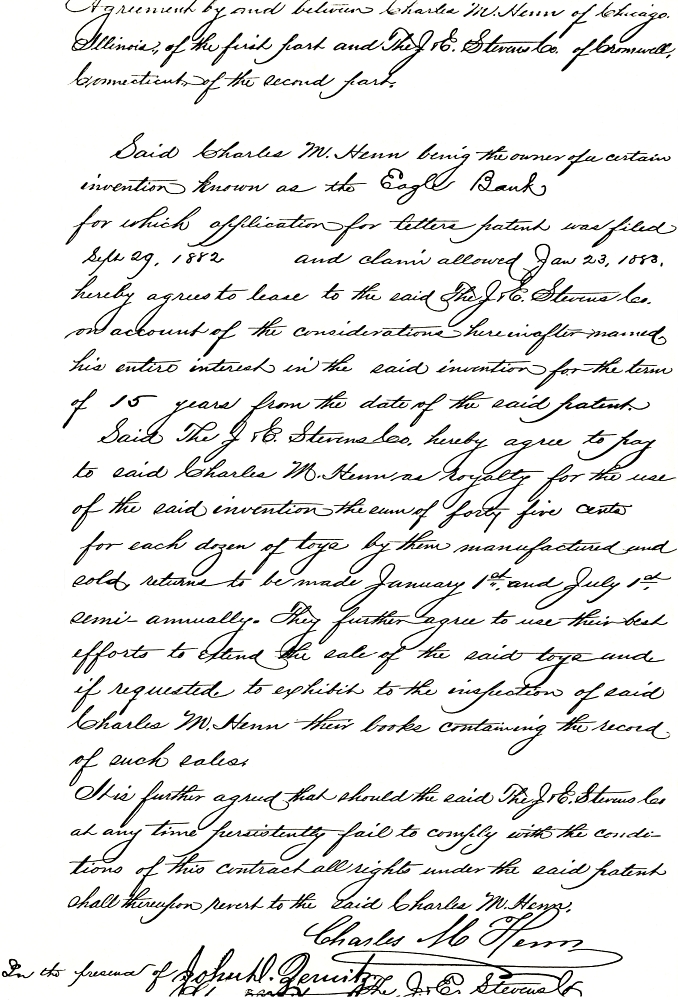 Agreement by and between Charles M. Henn of Chicago.
Illinois, of the first part and The J & E. Stevens Co. of Cromwell,
Connecticut of the second part.
Said Charles M. Henn being the owner of a certain
invention known as the Eagle Bank
for which application for letters patent was filed
Sept 29, 1882 and claim allowed Jan 23, 1883.
hereby agrees to lease to the said The J. & E. Stevens Co.
on account of the considerations hereinafter named
his entire interest in the said invention for the term
of 15 years from the date of the said patent.
Said The J & E. Stevens Co. hereby agree to pay
to said Charles M. Henn as royalty for the use
of the said invention the sum of forty five cents
for each dozen of toys by them manufactured and
sold, returns to be made January 1st. and July 1st.
semi-annually. They further agree to use their best
efforts to extend the sale of the said toys and
if requested to exhibit to the inspection of said
Charles M. Henn their books containing the record
of such sales.
It is further agreed that should the said The J & E. Stevens Co
at any time persistently fail to comply with the condi-
tions of this contract all rights under the said patent
shall thereupon revert to the said Charles M. Henn.
Charles M Henn
In the presence of John D.
The J. & E. Stevens Co